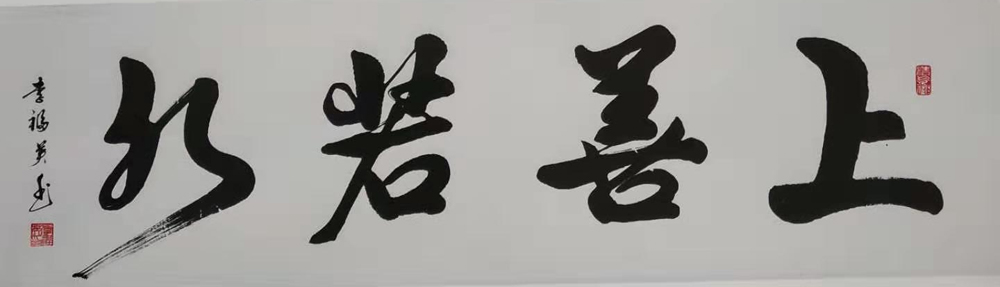 上善若水
李福英书